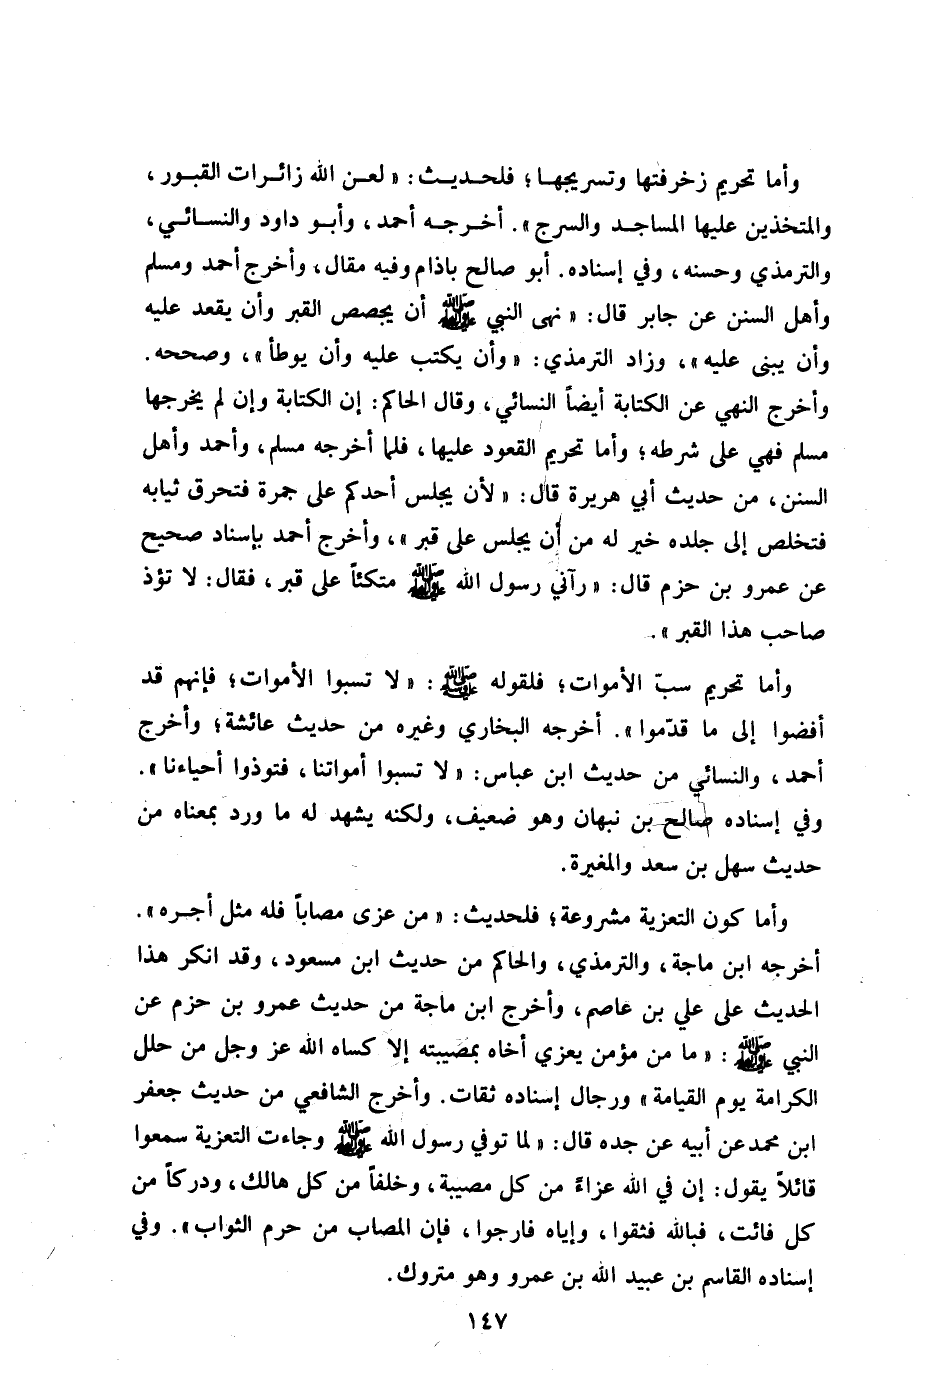 وأما تحريم زخرفتها وتسريجهـا؛ فلحـديـث: «لعـن الله زائـرات القبـور،
والمتخذين عليها المساجـد والسرج». أخـرجـه أحمد، وأبـو داود والنسـائـي،
والترمذي وحسنه، وفي إسناده. أبو صالح باذام وفيه مقال، وأخرج أحمد ومسلم
وأهل السنن عن جابر قال: «نهى النبي ﷺ أن يجصص القبر وأن يقعد عليه
وأن يبنى عليه»، وزاد الترمذي: «وأن يكتب عليه وأن يوطأ»، وصححه.
وأخرج النهي عن الكتابة أيضاً النسائي، وقال الحاكم: إن الكتابة وإن لم يخرجها
مسلم فهي على شرطه؛ وأما تحريم القعود عليها، فلما أخرجه مسلم، وأحمد وأهل
السنن، من حديث أبي هريرة قال: «لأن يجلس أحدكم على جمرة فتحرق ثيابه
فتخلص إلى جلده خير له من أن يجلس على قبر»، وأخرج أحمد بإسناد صحيح
عن عمرو بن حزم قال: «رآني رسول الله ﷺ متكئاً على قبر، فقال: لا تؤذ
صاحب هذا القبر».
وأما تحريم سبّ الأموات؛ فلقوله ﷺ: «لا تسبوا الأموات؛ فإنهم قد
أفضوا إلى ما قدّموا». أخرجه البخاري وغيره من حديث عائشة؛ وأخرج
أحمد، والنسائي من حديث ابن عباس: «لا تسبوا أمواتنا، فتوذوا أحياءنا».
وفي إسناده صالح بن نبهان وهو ضعيف، ولكنه يشهد له ما ورد بمعناه من
حديث سهل بن سعد والمغيرة.
وأما كون التعزية مشروعة؛ فلحديث: «من عزى مصاباً فله مثل أجـره».
أخرجه ابن ماجة، والترمذي، والحاكم من حديث ابن مسعود، وقد انكر هذا
الحديث على علي بن عاصم، وأخرج ابن ماجة من حديث عمرو بن حزم عن
النبي ﷺ: «ما من مؤمن يعزي أخاه بمصيبته إلا كساه الله عز وجل من حلل
الكرامة يوم القيامة» ورجال إسناده ثقات. وأخرج الشافعي من حديث جعفر
ابن محمد عن أبيه عن جده قال: «لما توفي رسول الله ﷺ وجاءت التعزية سمعوا
قائلاً يقول: إن في الله عزاءً من كل مصيبة، وخلفاً من كل هالك، ودركاً من
كل فائت، فبالله فثقوا، وإياه فارجوا، فإن المصاب من حرم الثواب». وفي
إسناده القاسم بن عبيد الله بن عمرو وهو متروك.
١٤٧